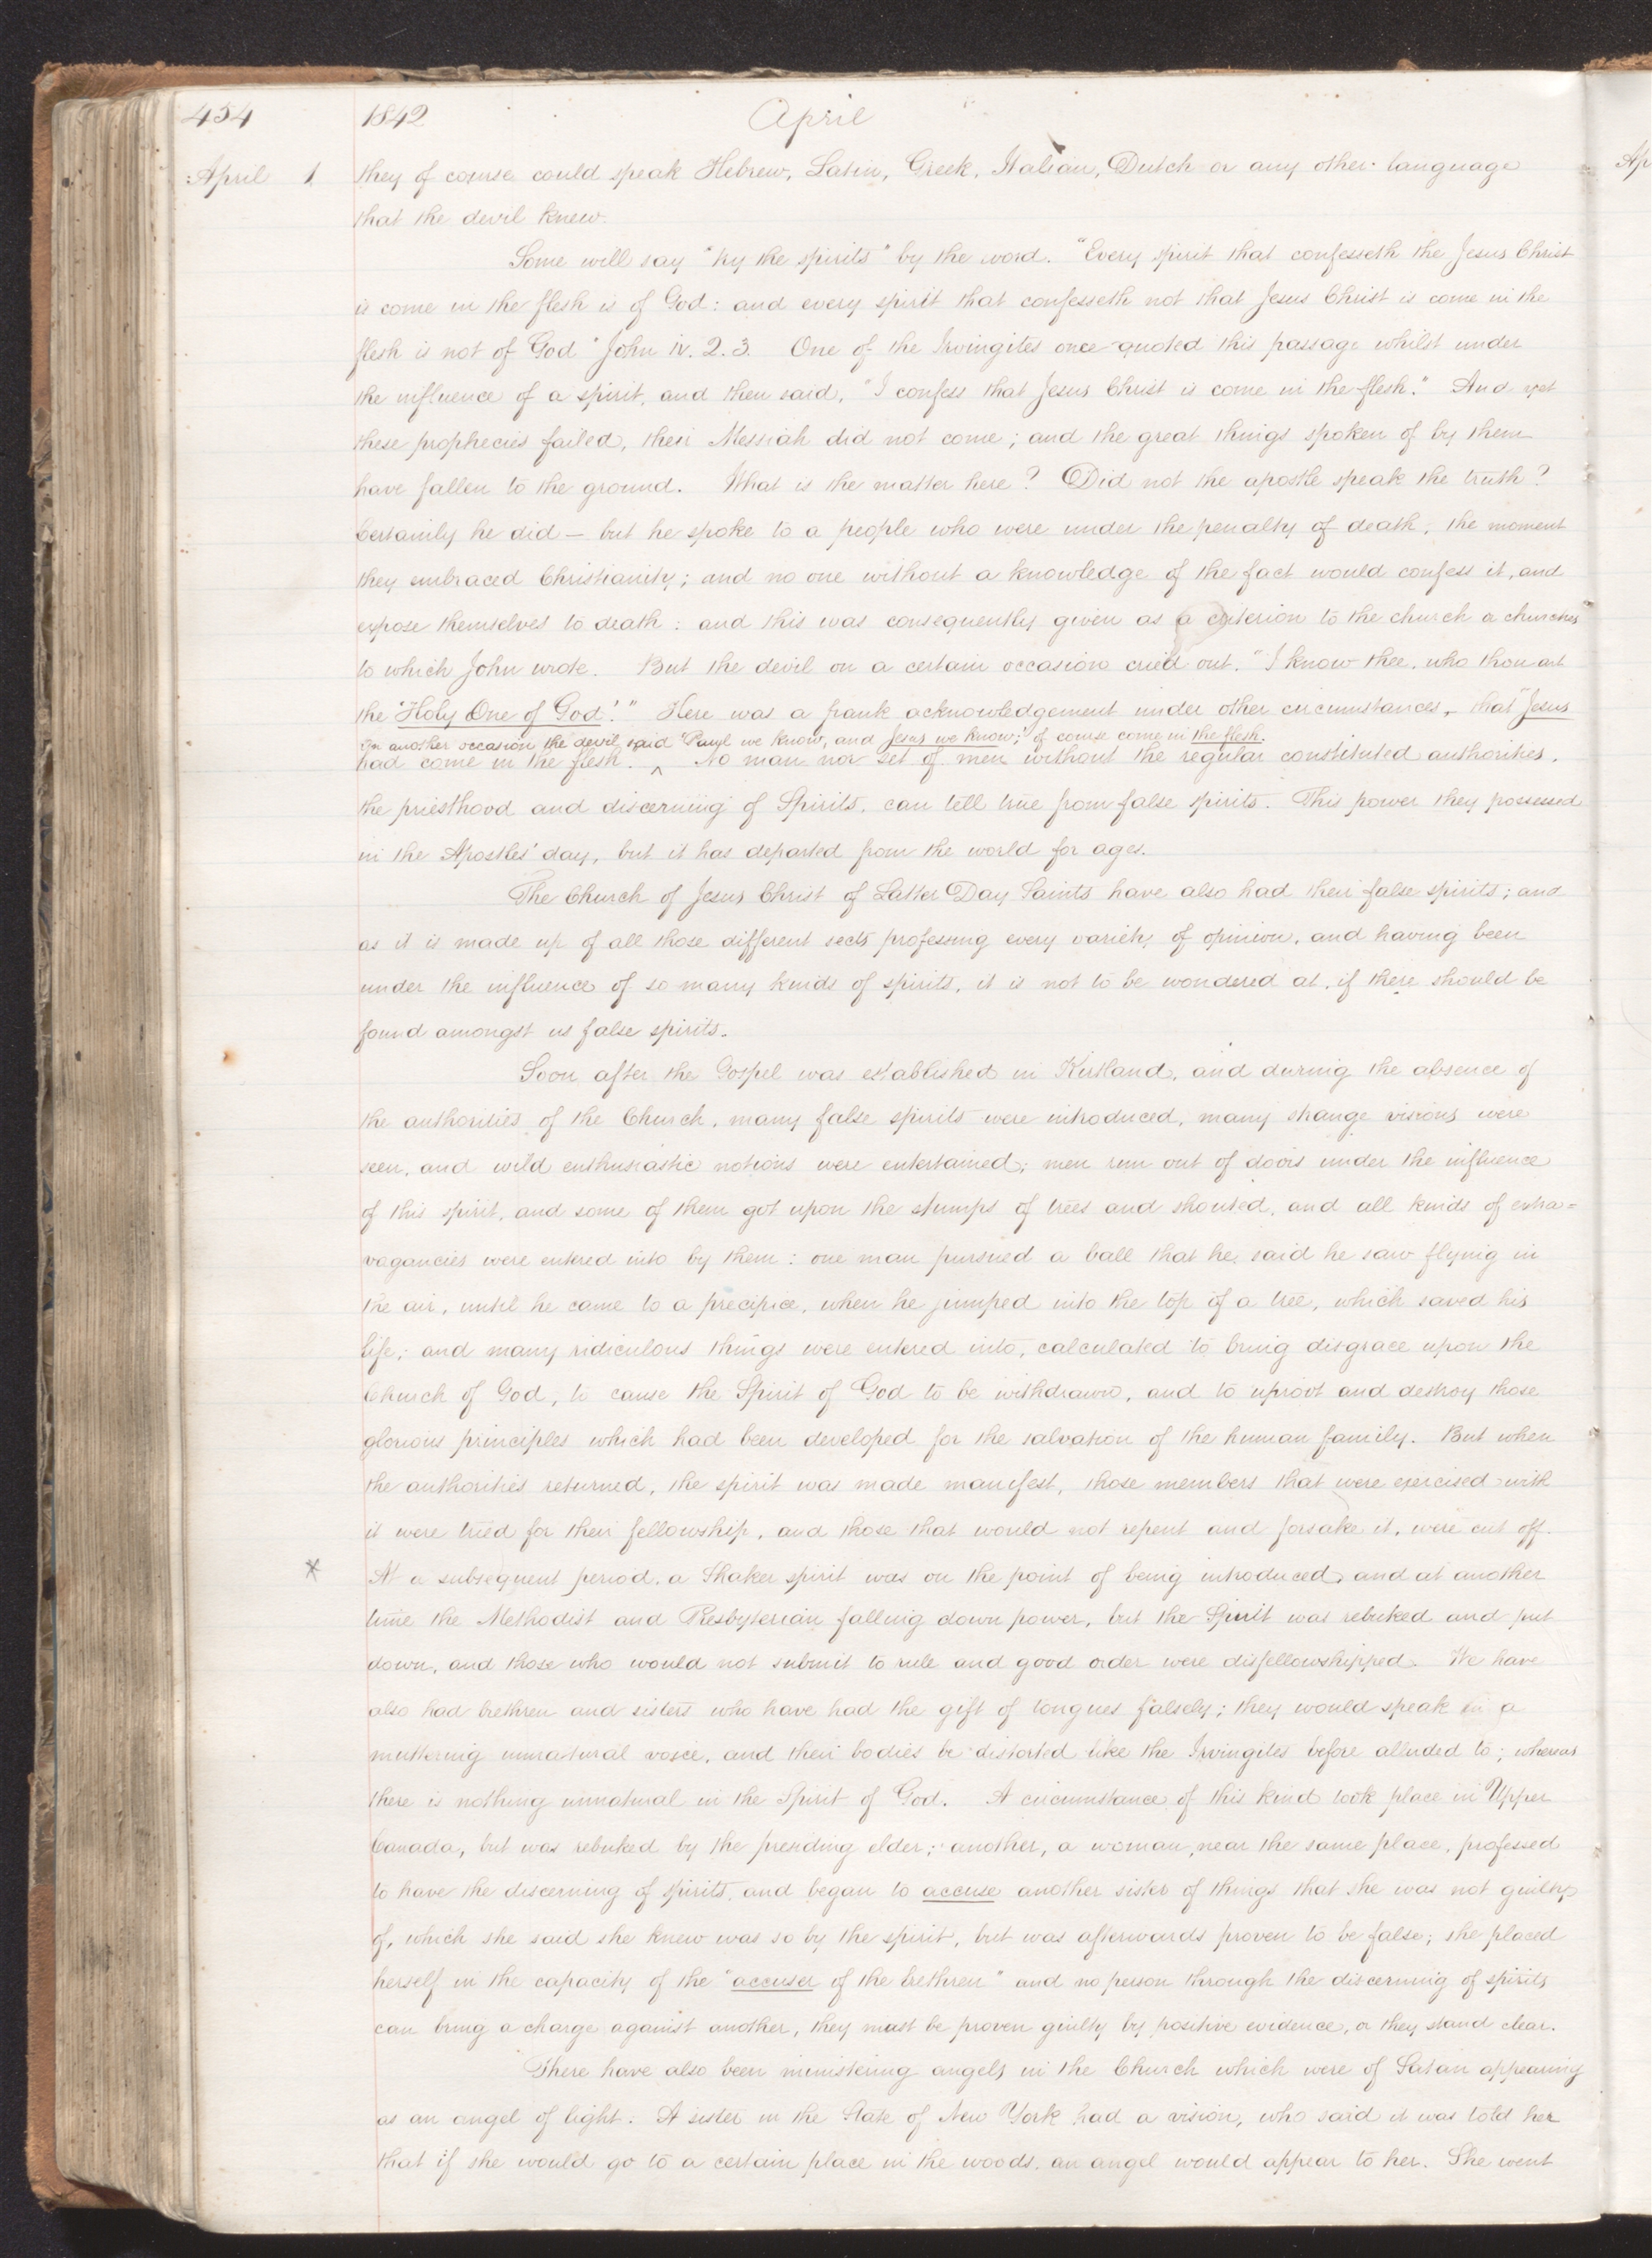 454 1842 April
April 1 they of course could speak Hebrew, Latin, Greek, Italian, Dutch or any other language
that the devil knew.
Some will say "try the spirits" by the word. "Every spirit that confesseth the Jesus Christ
is come in the flesh is of God: and every spirit that confesseth not that Jesus Christ is come in the
flesh is not of God" John iv. 2.3. One of the Irvingites once quoted this passage whilst under
the influence of a spirit, and then said, "I confess that Jesus Christ is come in the flesh." And yet
these prophecies failed, their Messiah did not come; and the great things spoken of by them
have fallen to the ground. What is the matter here? Did not the apostle speak the truth?
Certainly he did — but he spoke to a people who were under the penalty of death, the moment
they embraced Christianity; and no one without a knowledge of the fact would confess it, and
expose themselves to death: and this was consequently given as a criterion to the church or churches
to which John wrote. But the devil on a certain occasion cried out, "I know thee, who thou art
the 'Holy One of God'!" Here was a frank acknowledgement under other circumstances, that "Jesus
On another occasion the devil said 'Paul we know, and Jesus we know;' of course come in the flesh.
had come in the flesh. ^ No man nor set of men without the regular constituted authorities,
the priesthood and discerning of Spirits, can tell true from false spirits. This power they possessed
in the Apostles' day, but it has departed from the world for ages.
The Church of Jesus Christ of Latter Day Saints have also had their false spirits; and
as it is made up of all those different sects professing every variety of opinion, and having been
under the influence of so many kinds of spirits, it is not to be wondered at, if there should be
found amongst us false spirits.
Soon after the Gospel was established in Kirtland, and during the absence of
the authorities of the Church, many false spirits were introduced, many strange visions were
seen, and wild enthusiastic notions were entertained; men run out of doors under the influence
of this spirit, and some of them got upon the stumps of trees and shouted, and all kinds of extra=
vagancies were entered into by them: one man pursued a ball that he said he saw flying in
the air, until he came to a precipice, when he jumped into the top of a tree, which saved his
life; and many ridiculous things were entered into, calculated to bring disgrace upon the
Church of God, to cause the Spirit of God to be withdrawn, and to uproot and destroy those
glorious principles which had been developed for the salvation of the human family. But when
the authorities returned, the spirit was made manifest, those members that were exercised with
it were tried for their fellowship, and those that would not repent and forsake it, were cut off.
* At a subsequent period, a Shaker spirit was on the point of being introduced, and at another
time the Methodist and Presbyterian falling down power, but the Spirit was rebuked and put
down, and those who would not submit to rule and good order were disfellowshipped. We have
also had brethren and sisters who have had the gift of tongues falsely; they would speak in a
muttering unnatural voice, and their bodies be distorted like the Irvingites before alluded to; whereas
there is nothing unnatural in the Spirit of God. A circumstance of this kind took place in Upper
Canada, but was rebuked by the presiding elder; another, a woman, near the same place, professed
to have the discerning of spirits, and began to accuse another sister of things that she was not guilty
of, which she said she knew was so by the spirit, but was afterwards proven to be false; she placed
herself in the capacity of the "accuser of the brethren" and no person through the discerning of spirits
can bring a charge against another, they must be proven guilty by positive evidence, or they stand clear.
There have also been ministering angels in the Church which were of Satan appearing
as an angel of light. A sister in the State of New York had a vision, who said it was told her
that if she would go to a certain place in the woods, an angel would appear to her. She went
Ap